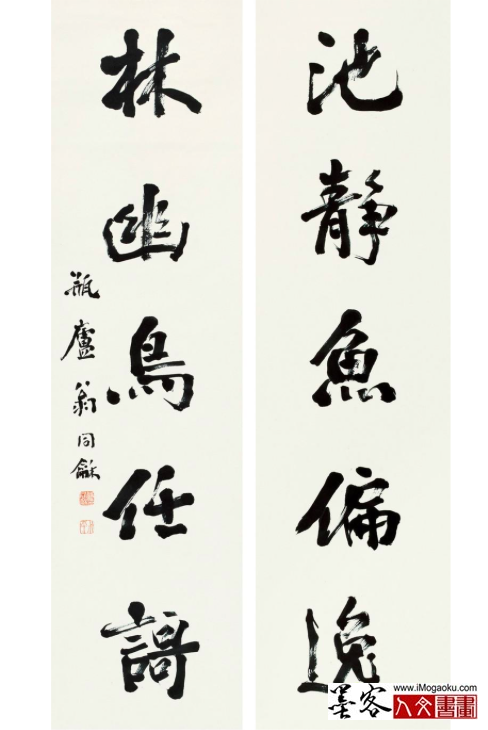 池靜魚偏逸
林幽鳥任謌
瓶廬翁同龢
墨客
www.iMogaoku.com
人文書畫